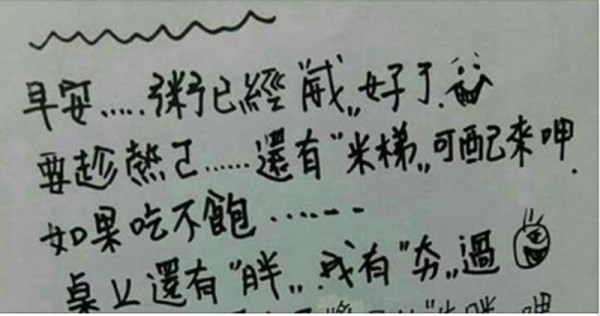 早安.....粥已經"咸"好了.
要趁熱ㄛ.....還有"米梯"可配來呷.
如果吃不飽......
桌上還有"胖"..我有"夯"過